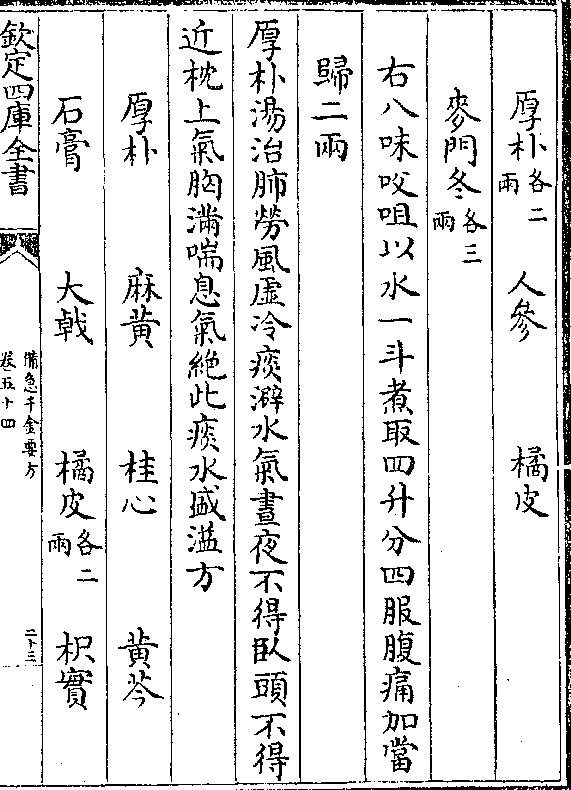 厚朴各二兩 人參 橘皮
麥門冬各三兩
右八味㕮咀以水一斗煮取四升分四服腹痛加當
歸二兩
厚朴湯治肺勞風虛冷痰澼水氣晝夜不得臥頭不得
近枕上氣胸滿喘息氣絶此痰水盛溢方
厚朴 麻黄 桂心 黄芩
石膏 大戟 橘皮各二兩 枳實
欽定四庫全書
備急千金要方
卷五十四
二十三